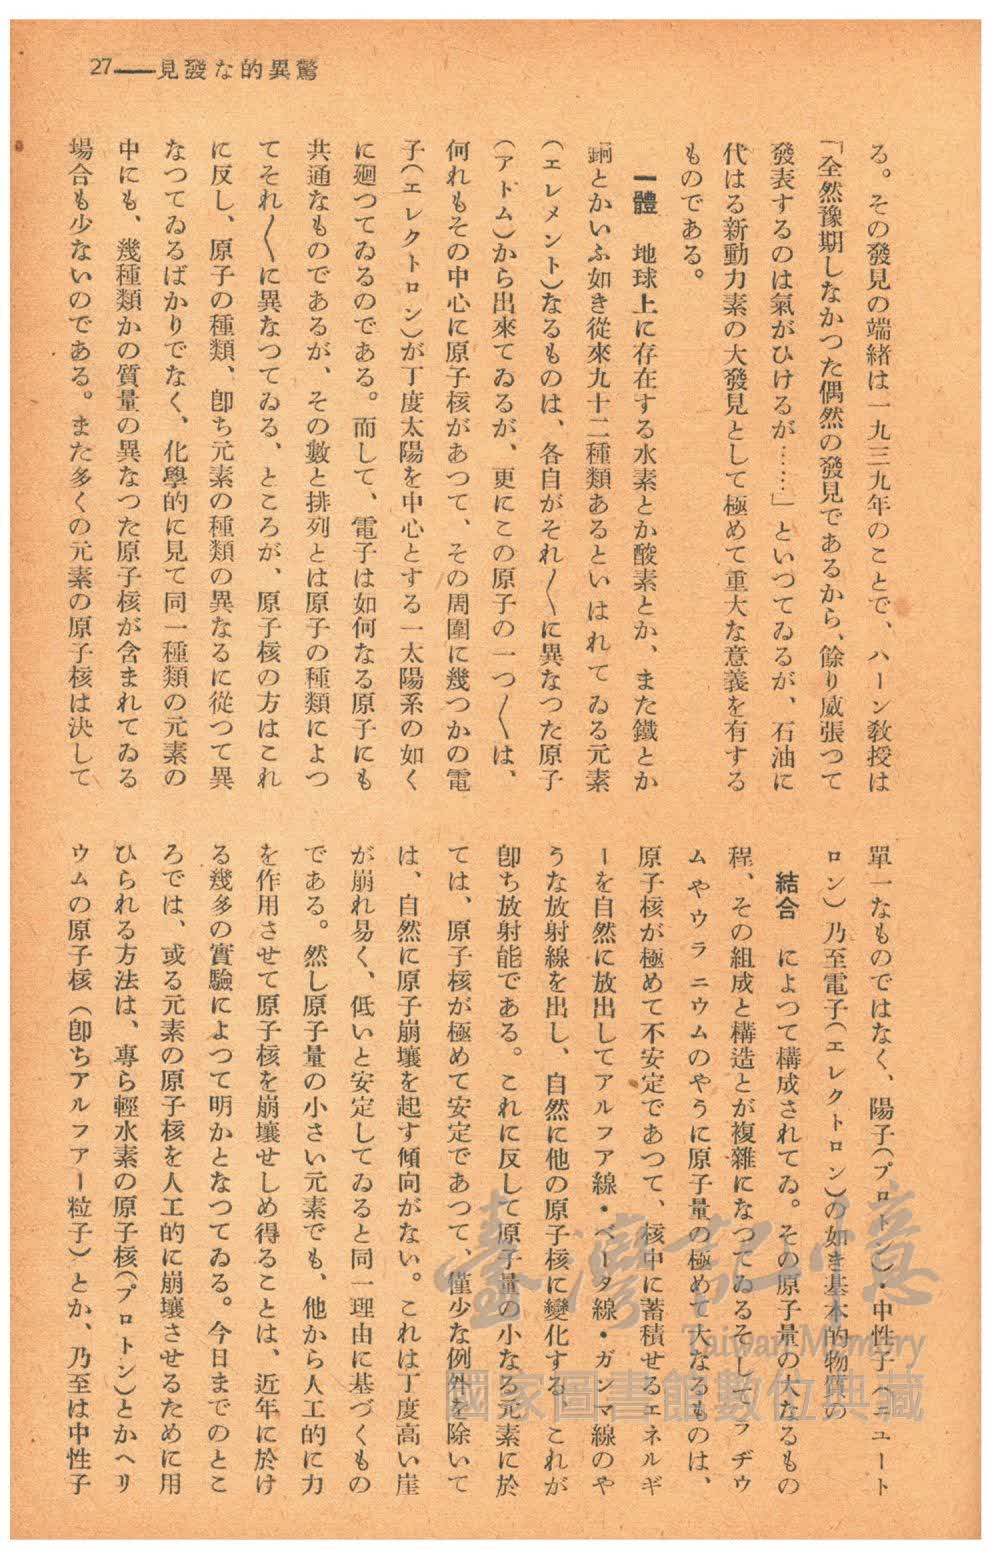 驚異的な發見——27
る。その發見の端緒は一九三九年のことで、ハーン敎授は
「全然豫期しなかつた偶然の發見であるから、餘り威張つて
發表するのは氣がひけるが……」といつてゐるが、石油に
代はる新動力素の大發見として極めて重大な意義を有する
ものである。
一體　地球上に存在する水素とか酸素とか、また鐵とか
銅とかいふ如き從來九十二種類あるといはれてゐる元素
（エレメント）なるものは、各自がそれ〳〵に異なつた原子
（アトム）から出來てゐるが、更にこの原子の一つ〳〵は、
何れもその中心に原子核があつて、その周圍に幾つかの電
子（エレクトロン）が丁度太陽を中心とする一太陽系の如く
に廻つてゐるのである。而して、電子は如何なる原子にも
共通なものであるが、その數と排列とは原子の種類によつ
てそれ〳〵に異なつてゐる、ところが、原子核の方はこれ
に反し、原子の種類、卽ち元素の種類の異なるに從つて異
なつてゐるばかりでなく、化學的に見て同一種類の元素の
中にも、幾種類かの質量の異なつた原子核が含まれてゐる
場合も少ないのである。また多くの元素の原子核は決して
單一なものではなく、陽子（プロトン）・中性子（ニュート
ロン）乃至電子（エレクトロン）の如き基本的物質の
結合　によつて構成されてゐ。その原子量の大なるもの
程、その組成と構造とが複雜になつてゐるそしてラヂウ
ムやウラニウムのやうに原子量の極めて大なるものは、
原子核が極めて不安定であつて、核中に蓄積せるエネルギ
ーを自然に放出してアルファ線・ベータ線・ガンマ線のや
うな放射線を出し、自然に他の原子核に變化する、これが
卽ち放射能である。これに反して原子量の小なる元素に於
ては、原子核が極めて安定であつて、僅少な例外を除いて
は、自然に原子崩壞を起す傾向がない。これは丁度高い崖
が崩れ易く、低いと安定してゐると同一理由に基づくもの
である。然し原子量の小さい元素でも、他から人工的に力
を作用させて原子核を崩壞せしめ得ることは、近年に於け
る幾多の實驗によつて明かとなつてゐる。今日までのとこ
ろでは、或る元素の原子核を人工的に崩壞させるために用
ひられる方法は、專ら輕水素の原子核（プロトン）とかヘリ
ウムの原子核（卽ちアルファー粒子）とか、乃至は中性子
臺灣記憶
Taiwan Memory
國家圖書館數位典藏